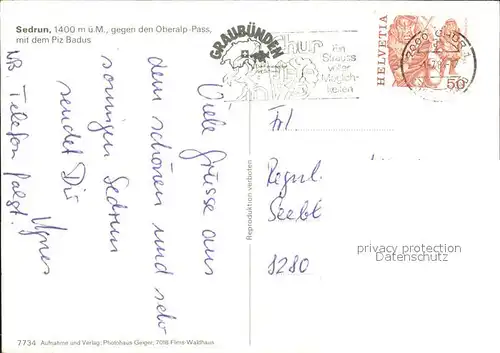 Sedrun, 1400 m ü.M., gegen den Oberalp-Pass,
mit dem Piz Badus
Viele Grüsse aus
dem schönen und sehr
sonnigen Sedrun
sendet Dir
Agnes
NB. Telefon folgt.
7734 Aufnahme und Verlag: Photohaus Geiger, 7018 Flims-Waldhaus
Reproduktion verboten
GRAUBÜNDEN
Chur
Ein
Strauss
voller
Möglich-
keiten
7000 CHUR 1
HELVETIA
50
Frl.
8280
privacy protection
Datenschutz